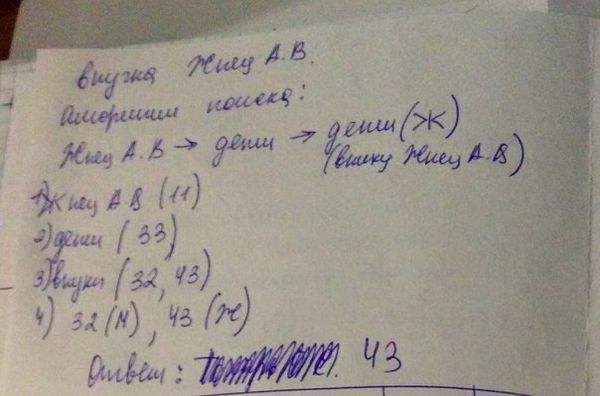 внучка Жнец А.В.
Алгоритм поиска:
Жнец А.В → дети → дети (Ж)
(внуки Жнец А.В)
1) Жнец А.В (11)
2) дети (33)
3) внуки (32, 43)
4) 32 (М), 43 (Ж)
Ответ: 43